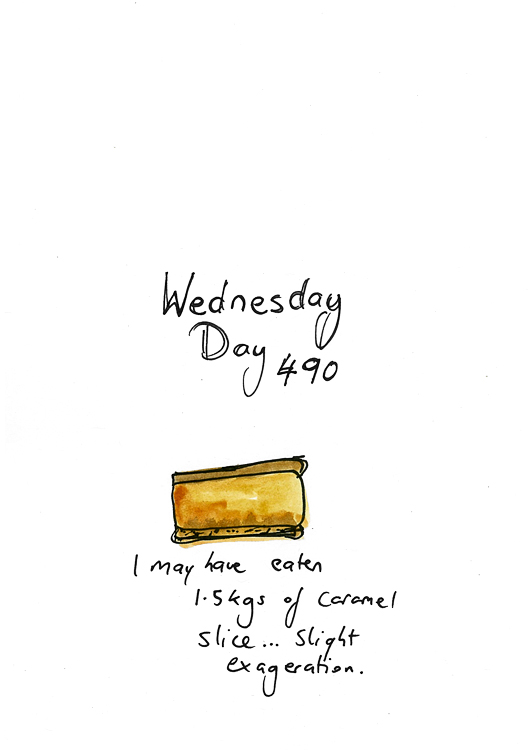 Wednesday
Day 490
I may have eaten
1.5kgs of caramel
slice... slight
exageration.